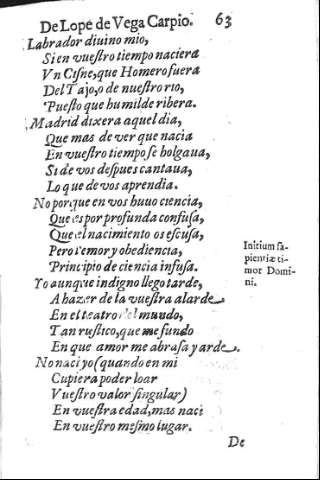 De Lope de Vega Carpio. 63
Labrador diuino mio,
Si en vueſtro tiempo naciera
Vn Ciſne, que Homero fuera
Del Tajo, o de nueſtro rio,
Pueſto que humilde ribera.
Madrid dixera aquel dia,
Que mas de ver que nacia
En vueſtro tiempo ſe holgaua,
Si de vos deſpues cantaua,
Lo que de vos aprendia.
No porque en vos huuo ciencia,
Que es por profunda confuſa,
Que el nacimiento os eſcuſa,
Pero temor y obediencia,
Principio de ciencia infuſa.
Initium ſa-
pientiæ ti-
mor Domi-
ni.
Yo aunque indigno llego tarde,
A hazer de la vueſtra alarde
En el teatro del mundo,
Tan ruſtico, que me fundo
En que amor me abraſa y arde.
No naci yo (quando en mi
Cupiera poder loar
Vueſtro valor ſingular)
En vueſtra edad, mas naci
En vueſtro meſmo lugar.
De